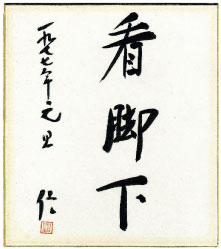 看脚下
一九七七年元旦